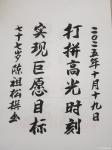 二〇二五年十月十九日
打拼高光时刻
实现巨愿目标
七十七岁陈祖松撰书